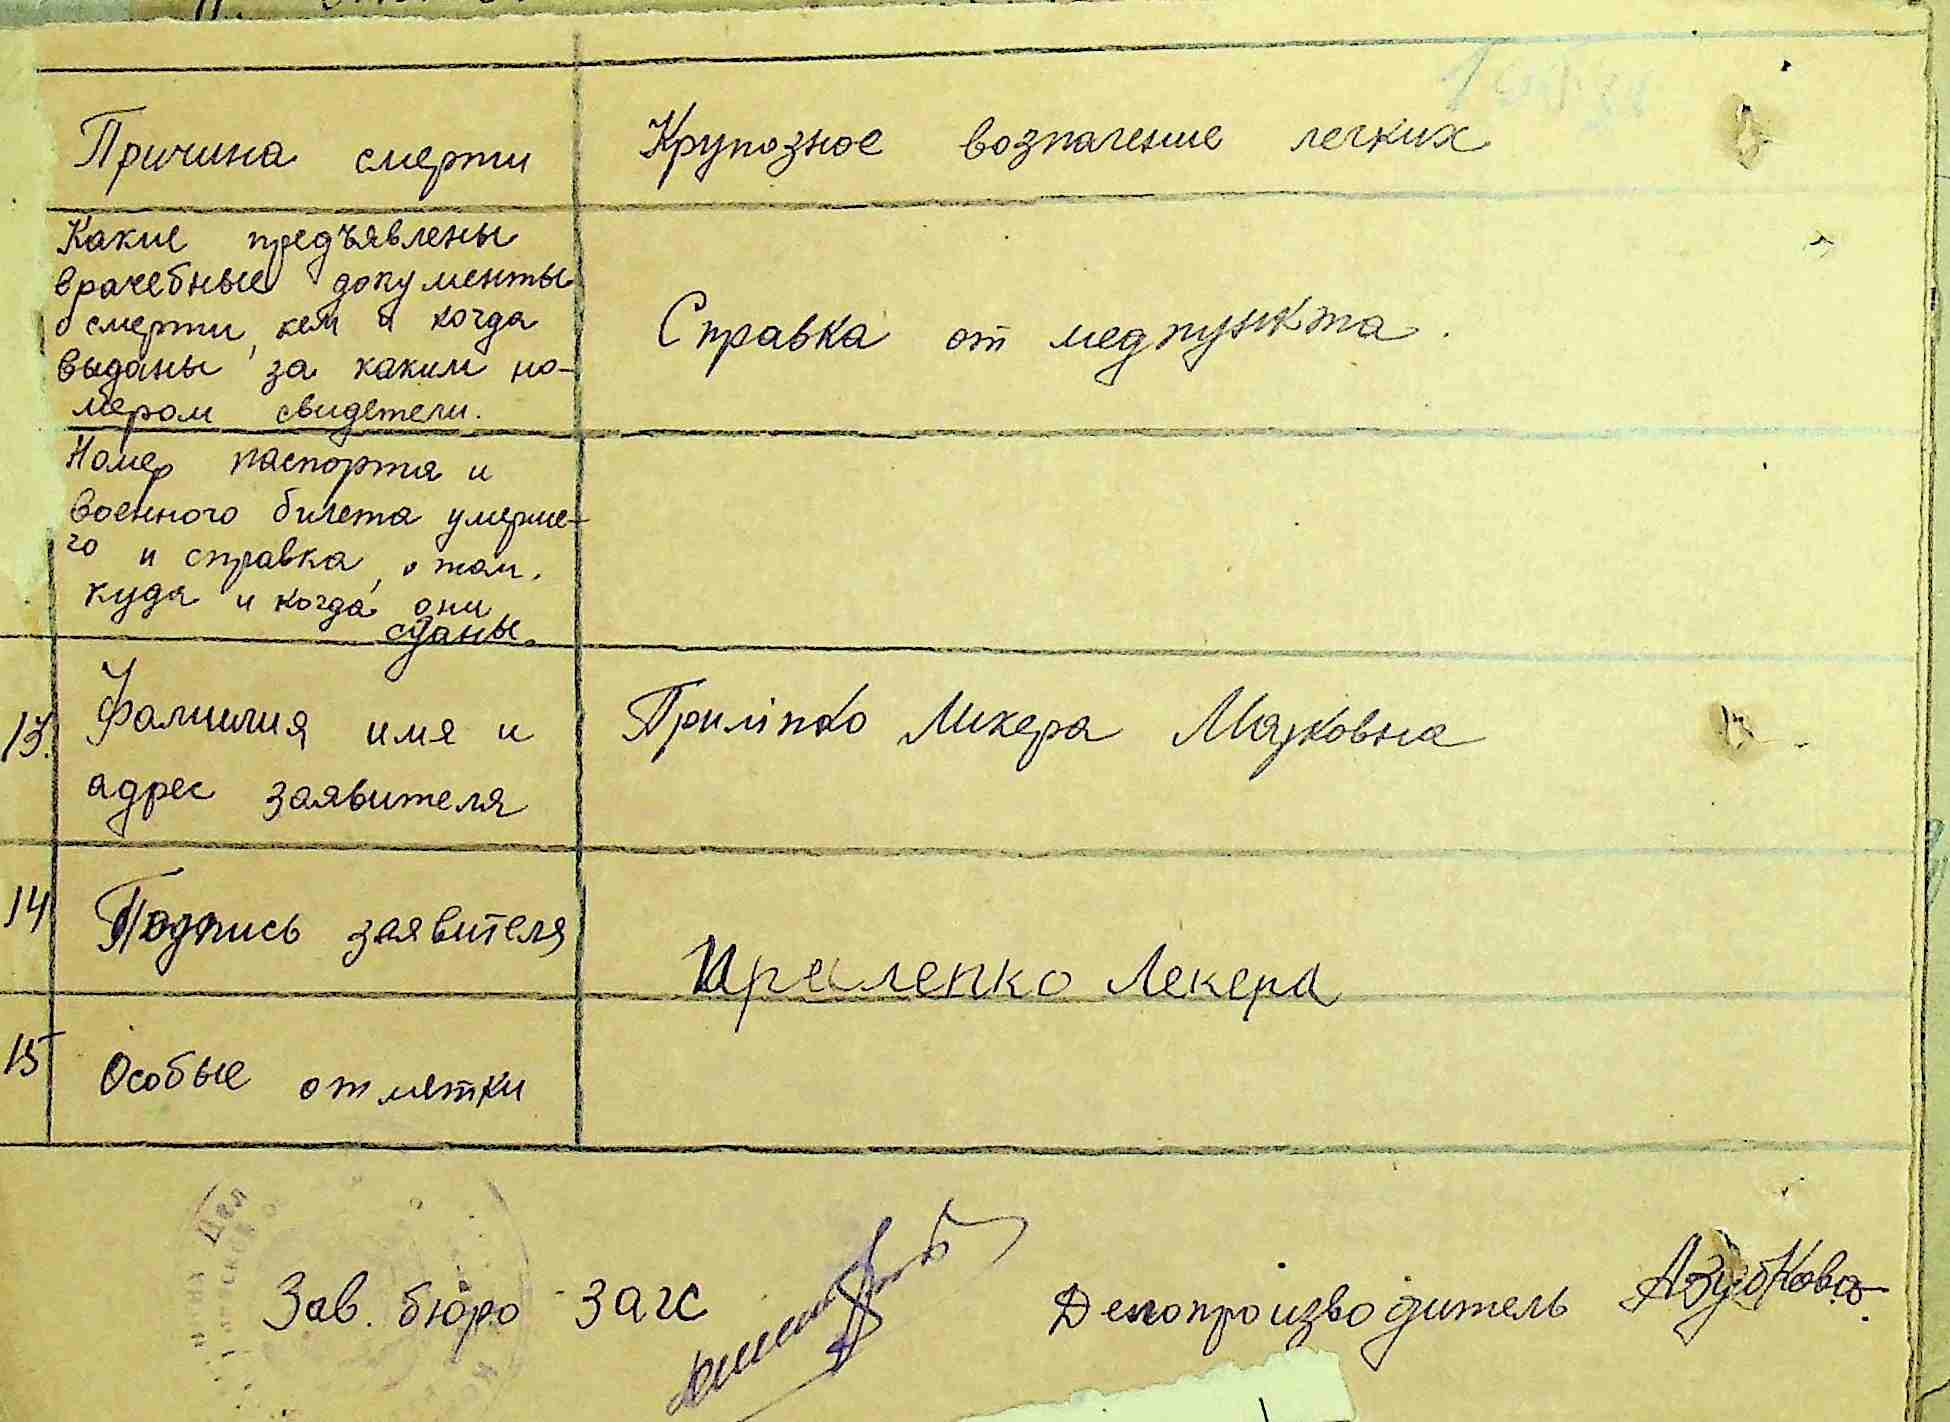 Причина смерти
Крупозное возпаление легких
Какие предъявлены
врачебные документы
о смерти, кем и когда
выданы за каким но-
мером свидетели.
Справка от медпункта.
Номер паспорта и
военного билета умерше-
го и справка, о том,
куда и когда они
сданы.
13. Фамилия имя и
адрес заявителя
Приліпко Микера Марковна
14 Подпись заявителя
Прилепко Лекера
15 Особые отметки
Зав. бюро загс
Делопроизводитель АЗубкова.